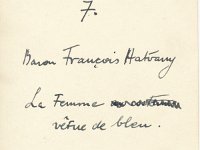 7.
Baron François Hatvany
La Femme
vêtue de bleu.